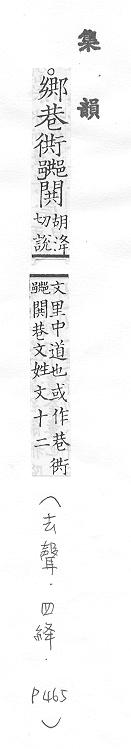 集韻
鄉巷衖𨞠閧胡洚切說
文里中道也或作巷衖
𨞠閧巷文姓文十二
(去聲．四絳．P465)